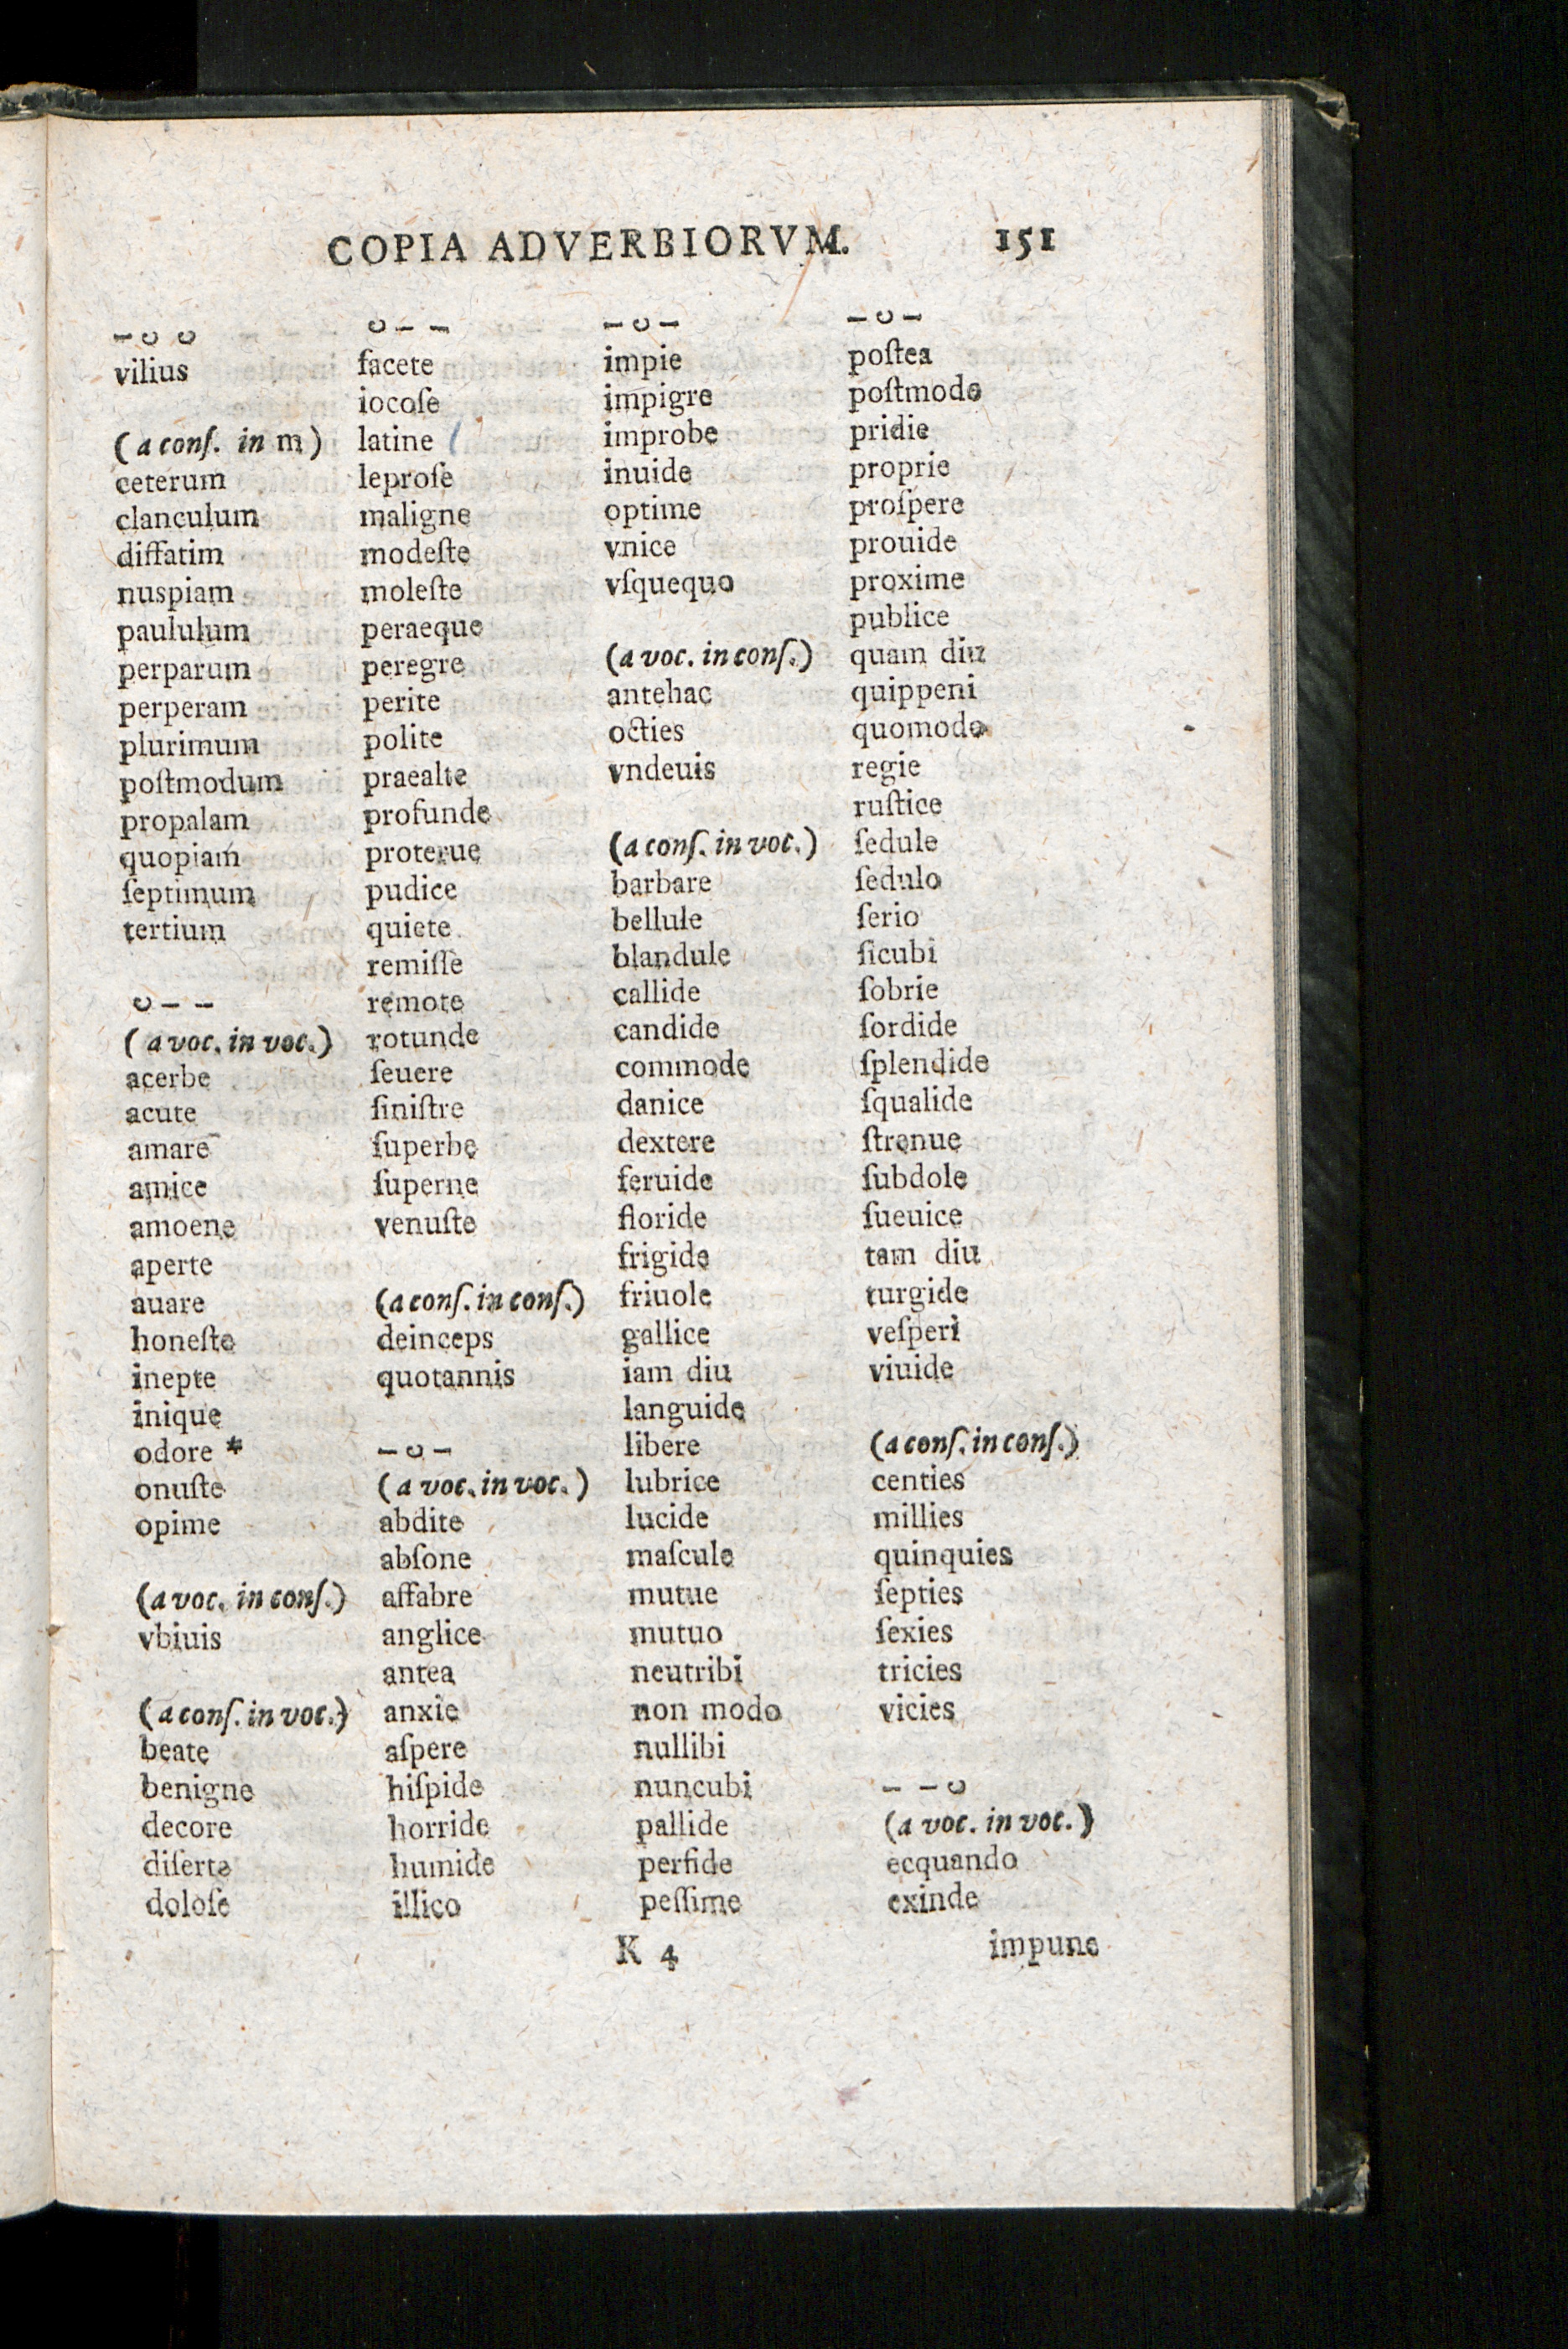 COPIA ADVERBIORVM. 151
– ᴗ ᴗ
vilius
(a conſ. in m)
ceterum
clanculum
diffatim
nuspiam
paululum
perparum
perperam
plurimum
poſtmodum
propalam
quopiam
ſeptimum
tertium
ᴗ – –
(a voc. in voc.)
acerbe
acute
amare
amice
amoene
aperte
auare
honeſte
inepte
inique
odore *
onuſte
opime
(a voc. in conſ.)
vbiuis
(a conſ. in voc.)
beate
benigne
decore
diſerte
doloſe
ᴗ – –
facete
iocoſe
latine
leproſe
maligne
modeſte
moleſte
peraeque
peregre
perite
polite
praealte
profunde
proterue
pudice
quiete
remiſſe
remote
rotunde
ſeuere
ſiniſtre
ſuperbe
ſuperne
venuſte
(a conſ. in conſ.)
deinceps
quotannis
– ᴗ –
(a voc. in voc.)
abdite
abſone
affabre
anglice
antea
anxie
aſpere
hiſpide
horride
humide
illico
– ᴗ –
impie
impigre
improbe
inuide
optime
vnice
vſquequo
(a voc. in conſ.)
antehac
octies
vndeuis
(a conſ. in voc.)
barbare
bellule
blandule
callide
candide
commode
danice
dextere
feruide
floride
frigide
friuole
gallice
iam diu
languide
libere
lubrice
lucide
maſcule
mutue
mutuo
neutribi
non modo
nullibi
nuncubi
pallide
perfide
peſſime
– ᴗ –
poſtea
poſtmodo
pridie
proprie
proſpere
prouide
proxime
publice
quam diu
quippeni
quomodo
regie
ruſtice
ſedule
ſedulo
ſerio
ſicubi
ſobrie
ſordide
ſplendide
ſqualide
ſtrenue
ſubdole
ſueuice
tam diu
turgide
veſperi
viuide
(a conſ. in conſ.)
centies
millies
quinquies
ſepties
ſexies
tricies
vicies
– – ᴗ
(a voc. in voc.)
ecquando
exinde
K 4 impune